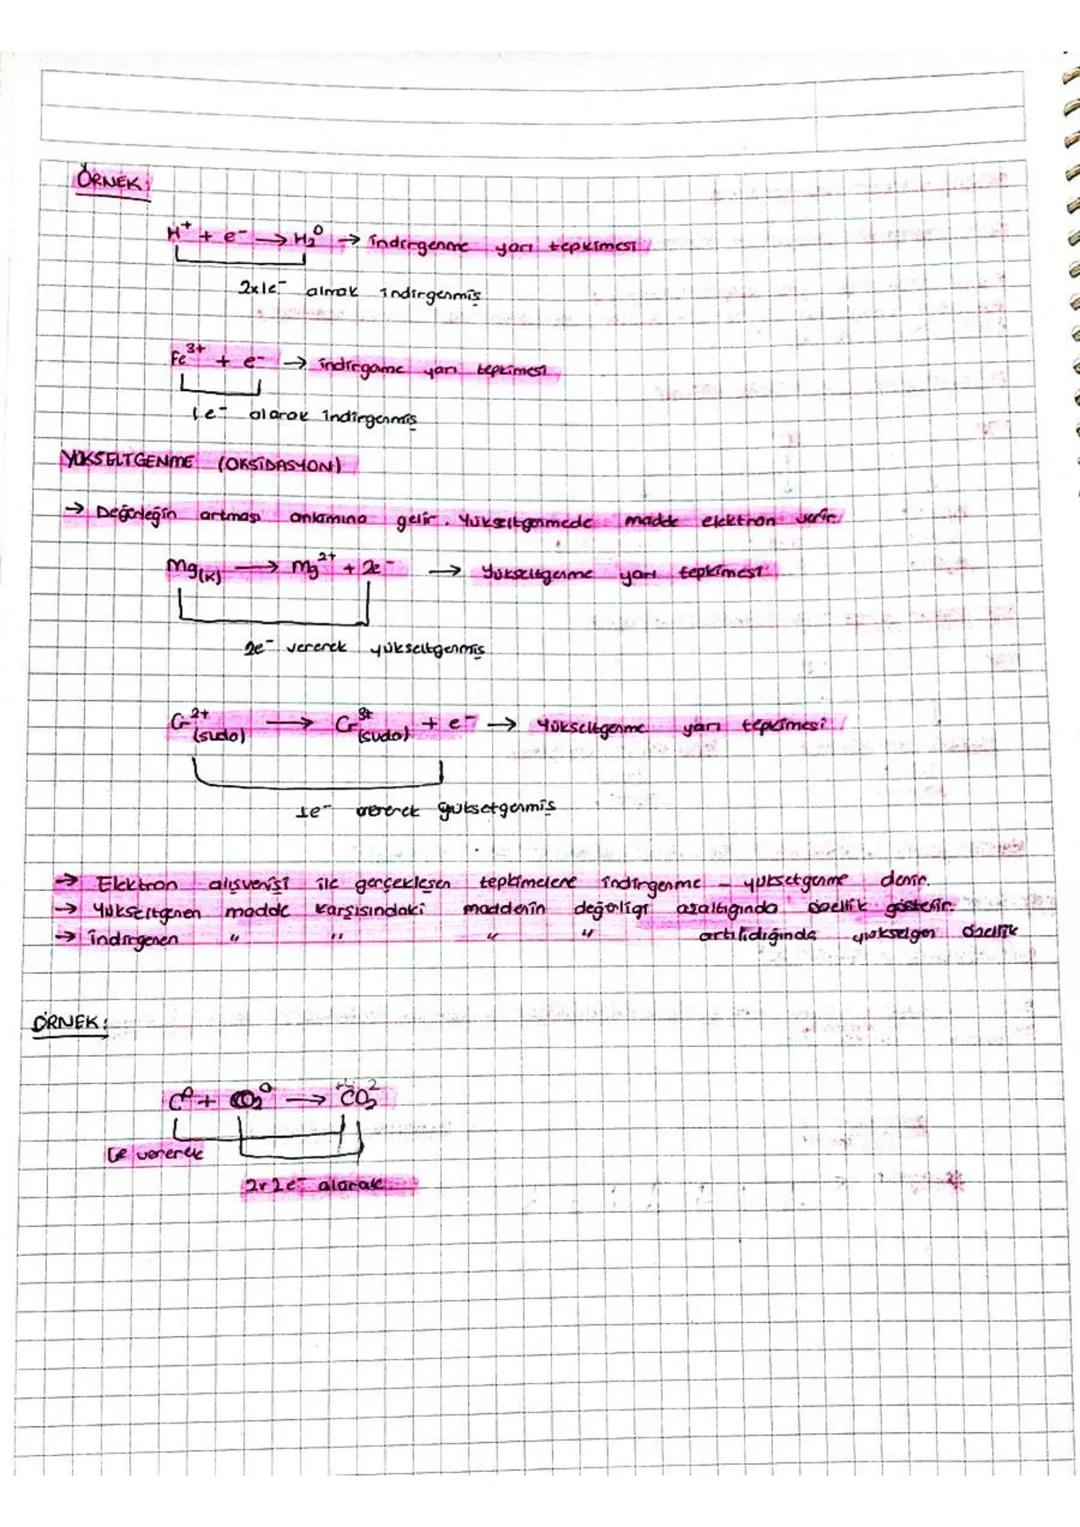 ÖRNEK:
H⁺ + e⁻ → H₂⁰ → indirgenme yarı tepkimesi
2x1e⁻ almak indirgenmiş
Fe³⁺ + e⁻ → indirgame yarı tepkimesi
1e⁻ alarak indirgenmiş
YÜKSELTGENME (OKSİDASYON)
→ Değerleğin artması anlamına gelir. Yükseltgenmede madde elektron verir.
Mg(k) → Mg²⁺ + 2e⁻ → Yükseltgenme yarı tepkimesi
2e⁻ vererek yükseltgenmiş
Cr²⁺(suda) → Cr³⁺(suda) + e⁻ → Yükseltgenme yarı tepkimesi
1e⁻ vererek yüksetgenmiş
→ Elektron alışverişi ile gerçekleşen tepkimelere indirgenme - yüksetgenme denir.
→ Yükseltgenen madde karşısındaki maddenin değerliği azaltığında özellik gösterir.
→ indirgenen " " " " artılıdığında özellik
ÖRNEK:
C⁰ + O₂⁰ → CO₂
vererek
2x2e⁻ alarak